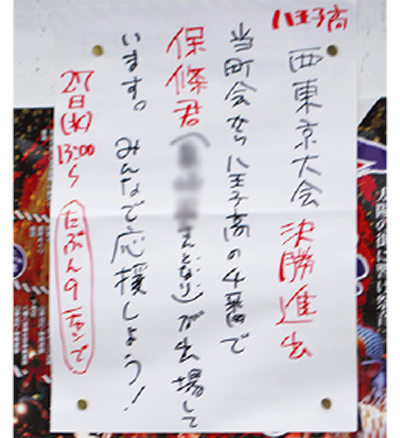 八王子高
西東京大会 決勝進出
当町会から八王子高の4番で
保條君(さんどなり)が出場して
います。みんなで応援しよう!
27日(水)13:00〜 たぶん9チャンで